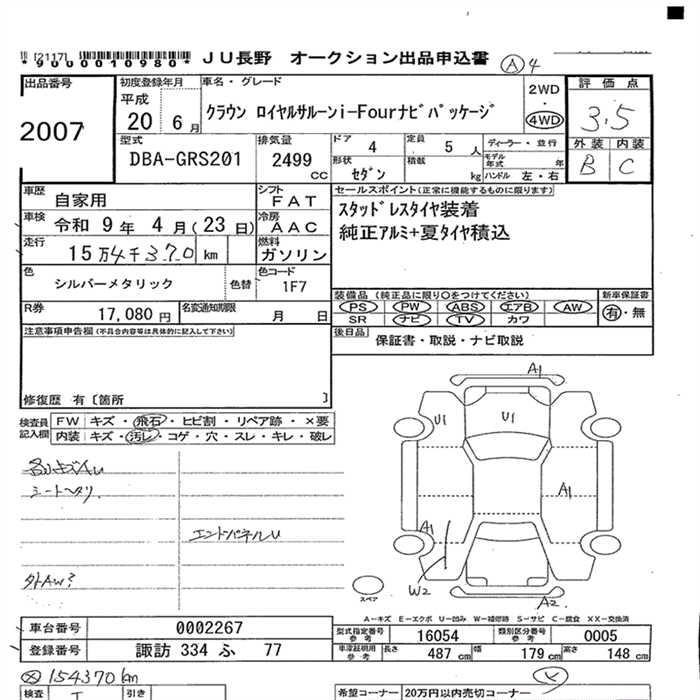 [2117]
*9000010980* JU長野 オークション出品申込書 A 4
出品番号
2007
初度登録年月
平成
20 6月
車名・グレード
クラウン ロイヤルサルーンi-Fourナビパッケージ
2WD
・
4WD
評価点
3.5
外装 内装
B C
型式
DBA-GRS201
排気量
2499
cc
ドア 4
定員 5 人
形状 セダン
積載 kg
ディーラー・並行
モデル年式 年
ハンドル 左・右
車歴 自家用
シフト FAT
車検 令和 9年 4月(23日)
冷房 AAC
走行 15万4千370 km
燃料 ガソリン
色 シルバーメタリック
色替
色コード 1F7
R券 17,080円
名変通知期限 月 日
セールスポイント(正常に機能するものに限ります)
スタッドレスタイヤ装着
純正アルミ+夏タイヤ積込
装備品(純正品に限り○をつけてください)
PS PW ABS エアB AW
SR ナビ TV カワ
新車保証書
有・無
後日品 保証書・取説・ナビ取説
注意事項申告欄(不具合内容等は具体的に記入して下さい)
修復歴 有〔箇所 〕
検査員記入欄
FW キズ・飛石・ヒビ割・リペア跡・×要
内装 キズ・汚レ・コゲ・穴・スレ・キレ・破レ
シートヘタリ
エンドパネルU
外AW?
A1
U1
U1
A1
A1
W2
A2
スペア
A-キズ E-エクボ U-凹み W-補修跡 S-サビ C-腐食 XX-交換済
車台番号 0002267
登録番号 諏訪 334 ふ 77
型式指定番号 参考 16054
類別区分番号 参考 0005
車庫証明用 参考 長さ 487 cm 幅 179 cm 高さ 148 cm
154370km
検査
引き
希望コーナー 20万円以内売切コーナー